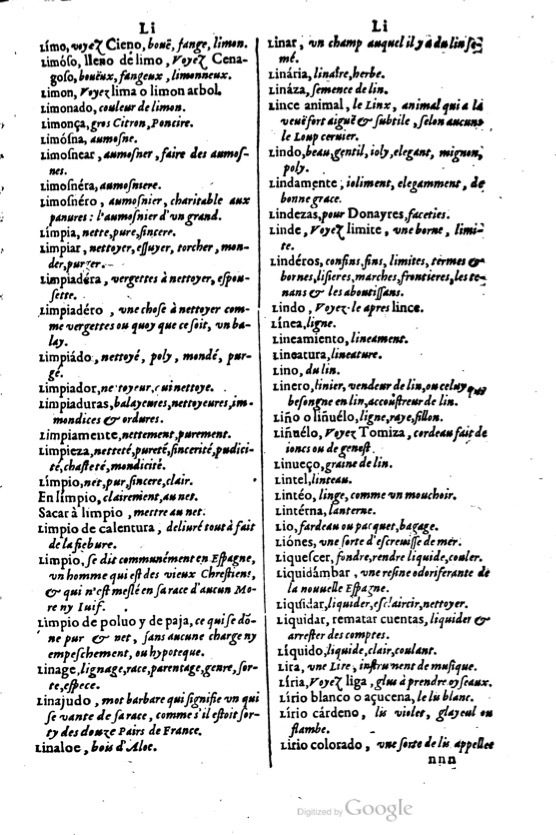 Li
Límo, voyez Cieno, bouë, fange, limon.
Limóso, lleno de limo, Voyez Cena-
goso, bouëux, fangeux, limonneux.
Limon, Voyez lima o limon arbol.
Limonado, couleur de limon.
Limonça, gros Citron, Poncire.
Limósna, aumosne.
Limosnear, aumosner, faire des aumos-
nes.
Limosnéra, aumosniere.
Limosniéro, aumosnier, charitable aux
pauures: l'aumosnier d'vn grand.
Límpia, nette, pure, sincere.
Limpiar, nettoyer, essuyer, torcher, mon-
der, purger.
Limpiadéra, vergettes à nettoyer, espou-
sette.
Limpiadéro, vne chose à nettoyer com-
me vergettes ou quoy que ce soit, vn ba-
lay.
Limpiádo, nettoyé, poly, mondé, pur-
gé.
Limpiador, nettoyeur, qui nettoye.
Limpiaduras, balayeures, nettoyeures, im-
mondices & ordures.
Limpiamente, nettement, purement.
Limpieza, netteté, pureté, sincerité, pudici-
té, chasteté, mondicité.
Límpio, net, pur, sincere, clair.
En limpio, clairement, au net.
Sacar à limpio, mettre au net.
Limpio de calentura, deliuré tout à fait
de la fiebure.
Limpio, se dit communément en Espagne,
vn homme qui est des vieux Chrestiens,
& qui n'est meslé en sa race d'aucun Mo-
re ny Iuif.
Limpio de poluo y de paja, ce qui se dõ-
ne pur & net, sans aucune charge ny
empeschement, ou hypoteque.
Linage, lignage, race, parentage, genre, sor-
te, espece.
Linajudo, mot barbare qui signifie vn qui
se vante de sa race, comme s'il estoit sor-
ty des douze Pairs de France.
Linaloe, bois d'Aloe.
Li
Linar, vn champ auquel il y a du lin se-
mé.
Linária, linaire, herbe.
Lináza, semence de lin.
Lince animal, le Linx, animal qui a la
veuë fort aiguë & subtile, selon aucuns
le Loup ceruier.
Lindo, beau, gentil, ioly, elegant, mignon,
poly.
Lindamente, ioliment, elegamment, de
bonne grace.
Lindezas, pour Donayres, faceties.
Linde, Voyez limite, vne borne, limi-
te.
Lindéros, confins, fins, limites, termes &
bornes, lisieres, marches, frontieres, les te-
nans & les aboutissans.
Lindo, Voyez-le apres lince.
Línea, ligne.
Lineamiento, lineament.
Lineatura, lineature.
Lino, du lin.
Linero, linier, vendeur de lin, ou celuy qui
besongne en lin, accoustreur de lin.
Liño o liñuélo, ligne, raye, sillon.
Liñuélo, Voyez Tomiza, cordeau fait de
ioncs ou de genest.
Linueço, graine de lin.
Lintel, linteau.
Lintéo, linge, comme vn mouchoir.
Lintérna, lanterne.
Lio, fardeau ou pacquet, bagage.
Liónes, vne sorte d'escreuisse de mer.
Liquescer, fondre, rendre liquide, couler.
Liquidámbar, vne resine odoriferante de
la nouuelle Espagne.
Liquidar, liquider, esclaircir, nettoyer.
Liquidar, rematar cuentas, liquider &
arrester des comptes.
Líquido, liquide, clair, coulant.
Lira, vne Lire, instrument de musique.
Líria, Voyez liga, glus à prendre oyseaux.
Lírio blanco o açucena, le lis blanc.
Lírio cárdeno, lis violet, glayeul ou
flambe.
Lirio colorado, vne sorte de lis appellee
nnn
Digitized by Google